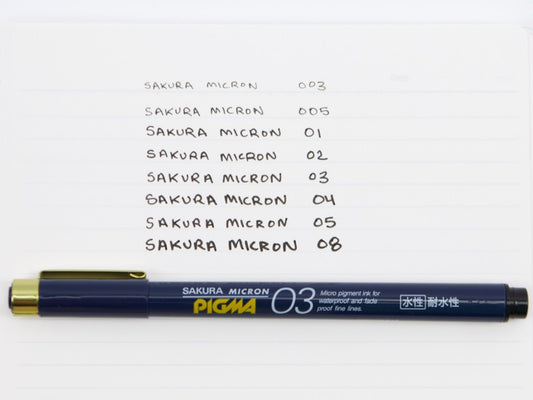 SAKURA MICRON 003
SAKURA MICRON 005
SAKURA MICRON 01
SAKURA MICRON 02
SAKURA MICRON 03
SAKURA MICRON 04
SAKURA MICRON 05
SAKURA MICRON 08
SAKURA MICRON
PIGMA 03
Micro pigment ink for
waterproof and fade
proof fine lines.
水性 耐水性